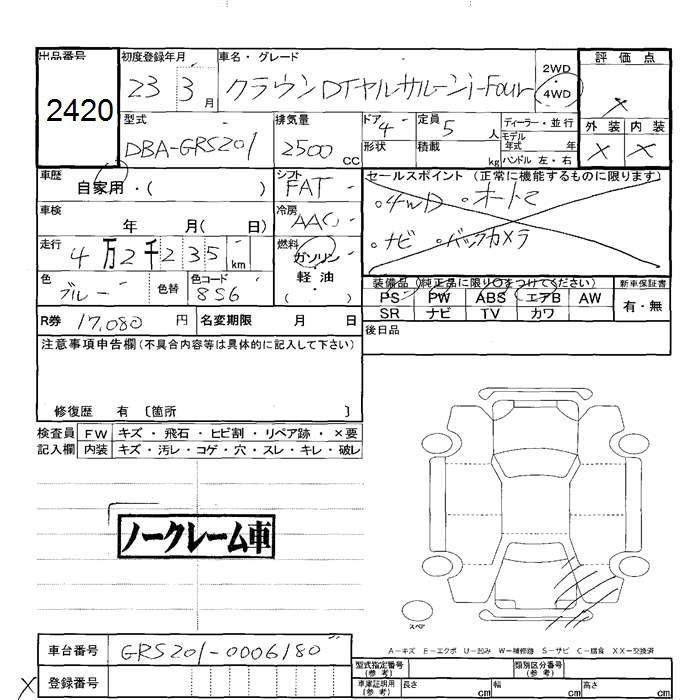 出品番号 初度登録年月 車名・グレード 2WD 評価点
2420 23 3月 クラウンロイヤルサルーンi-Four 4WD ×
型式 排気量 ドア 定員 ディーラー・並行 外装 内装
DBA-GRS201 2500 CC 4 5人 モデル年式 年 × ×
形状 積載 kg ハンドル 左・右
車歴 シフト セールスポイント (正常に機能するものに限ります)
自家用・( ) FAT
車検 冷房 ・4WD ・オートマ
年 月( 日) AAC
走行 燃料 ・ナビ ・バックカメラ
4万2千235 km ガソリン
色 色替 色コード 軽油
ブルー 8S6 ( )
装備品(純正品に限り○をつけてください) 新車保証書
PS PW ABS エアB AW 有・無
SR ナビ TV カワ
R券 17,080円 名変期限 月 日 後日品
注意事項申告欄(不具合内容等は具体的に記入して下さい)
修復歴 有 〔箇所 〕
検査員 FW キズ・飛石・ヒビ割・リペア跡・×要
記入欄 内装 キズ・汚レ・コゲ・穴・スレ・キレ・破レ
ノークレーム車
スペア
A-キズ E-エクボ U-凹み W-補修跡 S-サビ C-腐食 XX-交換済
車台番号 GRS201-0006180
型式指定番号(参考) 類別区分番号(参考)
× 登録番号
車庫証明用(参考) 長さ cm 幅 cm 高さ cm